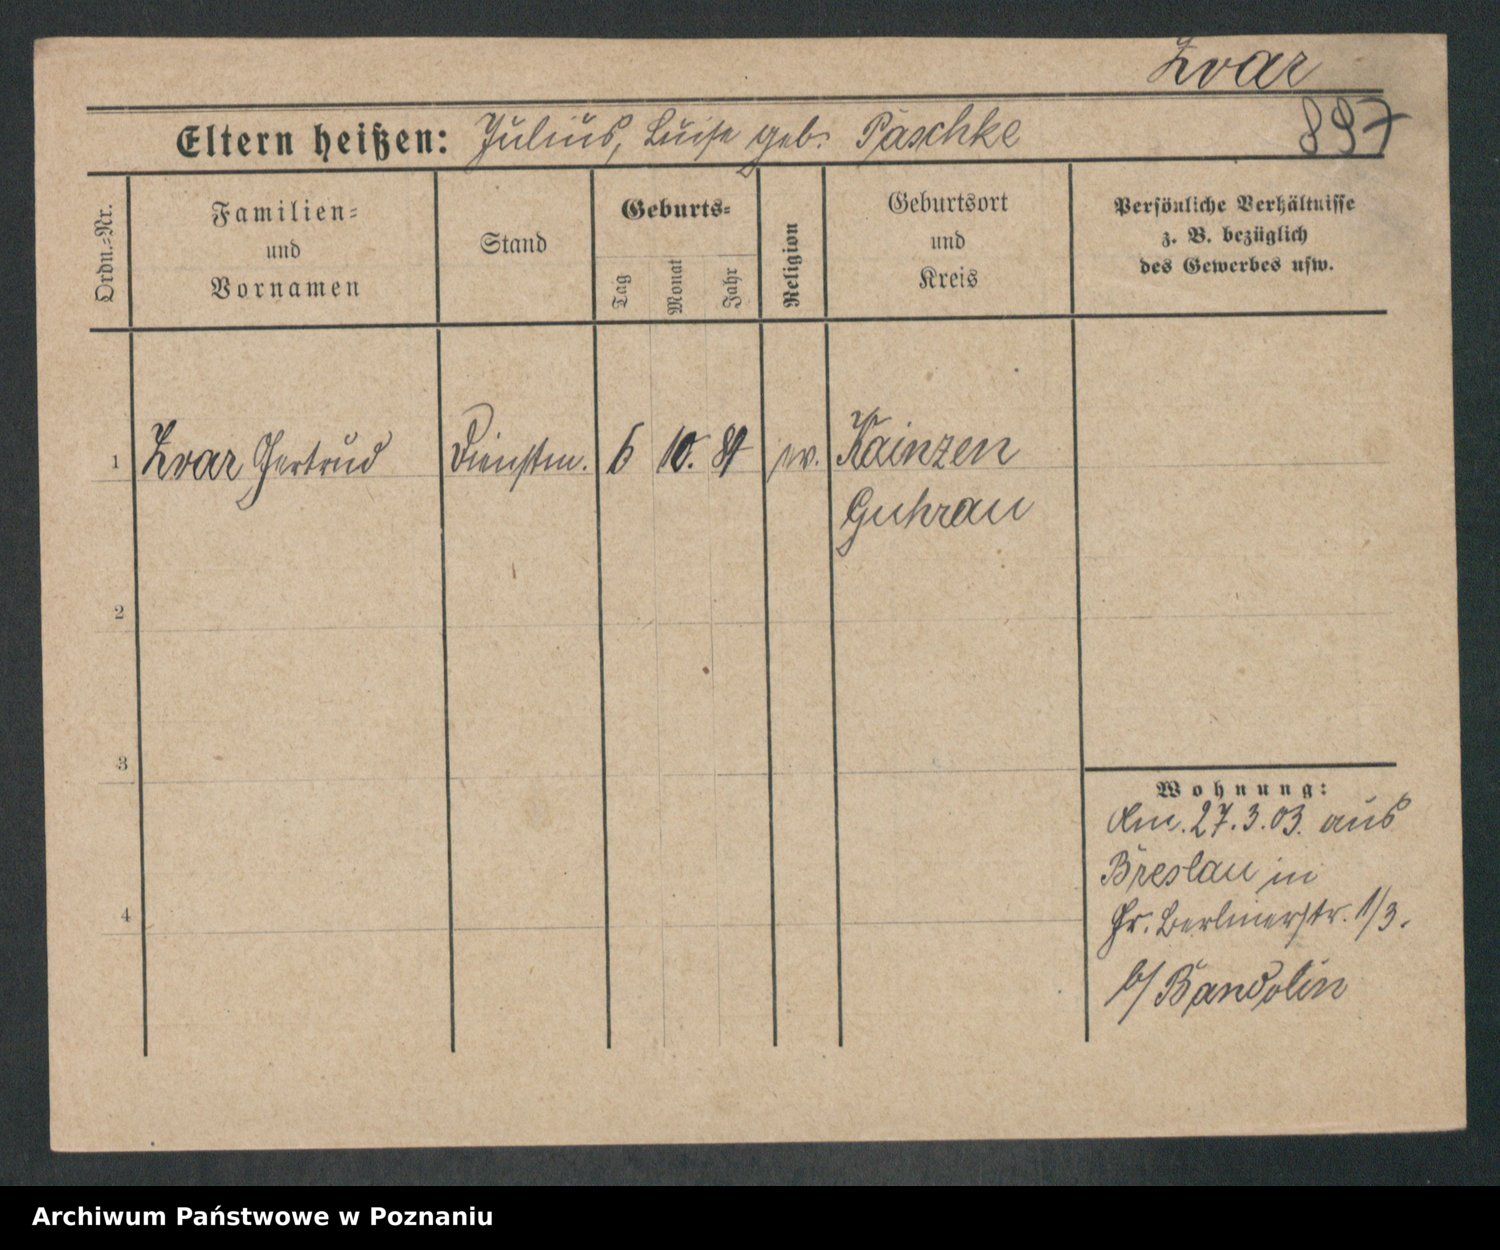 Zvar
897
Eltern heißen: Julius, Luise geb. Päschke
Ordn.-Nr.
Familien-
und
Vornamen
Stand
Geburts-
Tag
Monat
Jahr
Religion
Geburtsort
und
Kreis
Persönliche Verhältnisse
z. B. bezüglich
des Gewerbes usw.
1 Zvar Gertrud Dienstm. 6 10. ev. Kainzen
Guhrau
2
3
4
Wohnung:
Am. 27.3.03. aus
Breslau in
Gr. Berlinerstr. 1/3.
b/ Bandolin
Archiwum Państwowe w Poznaniu